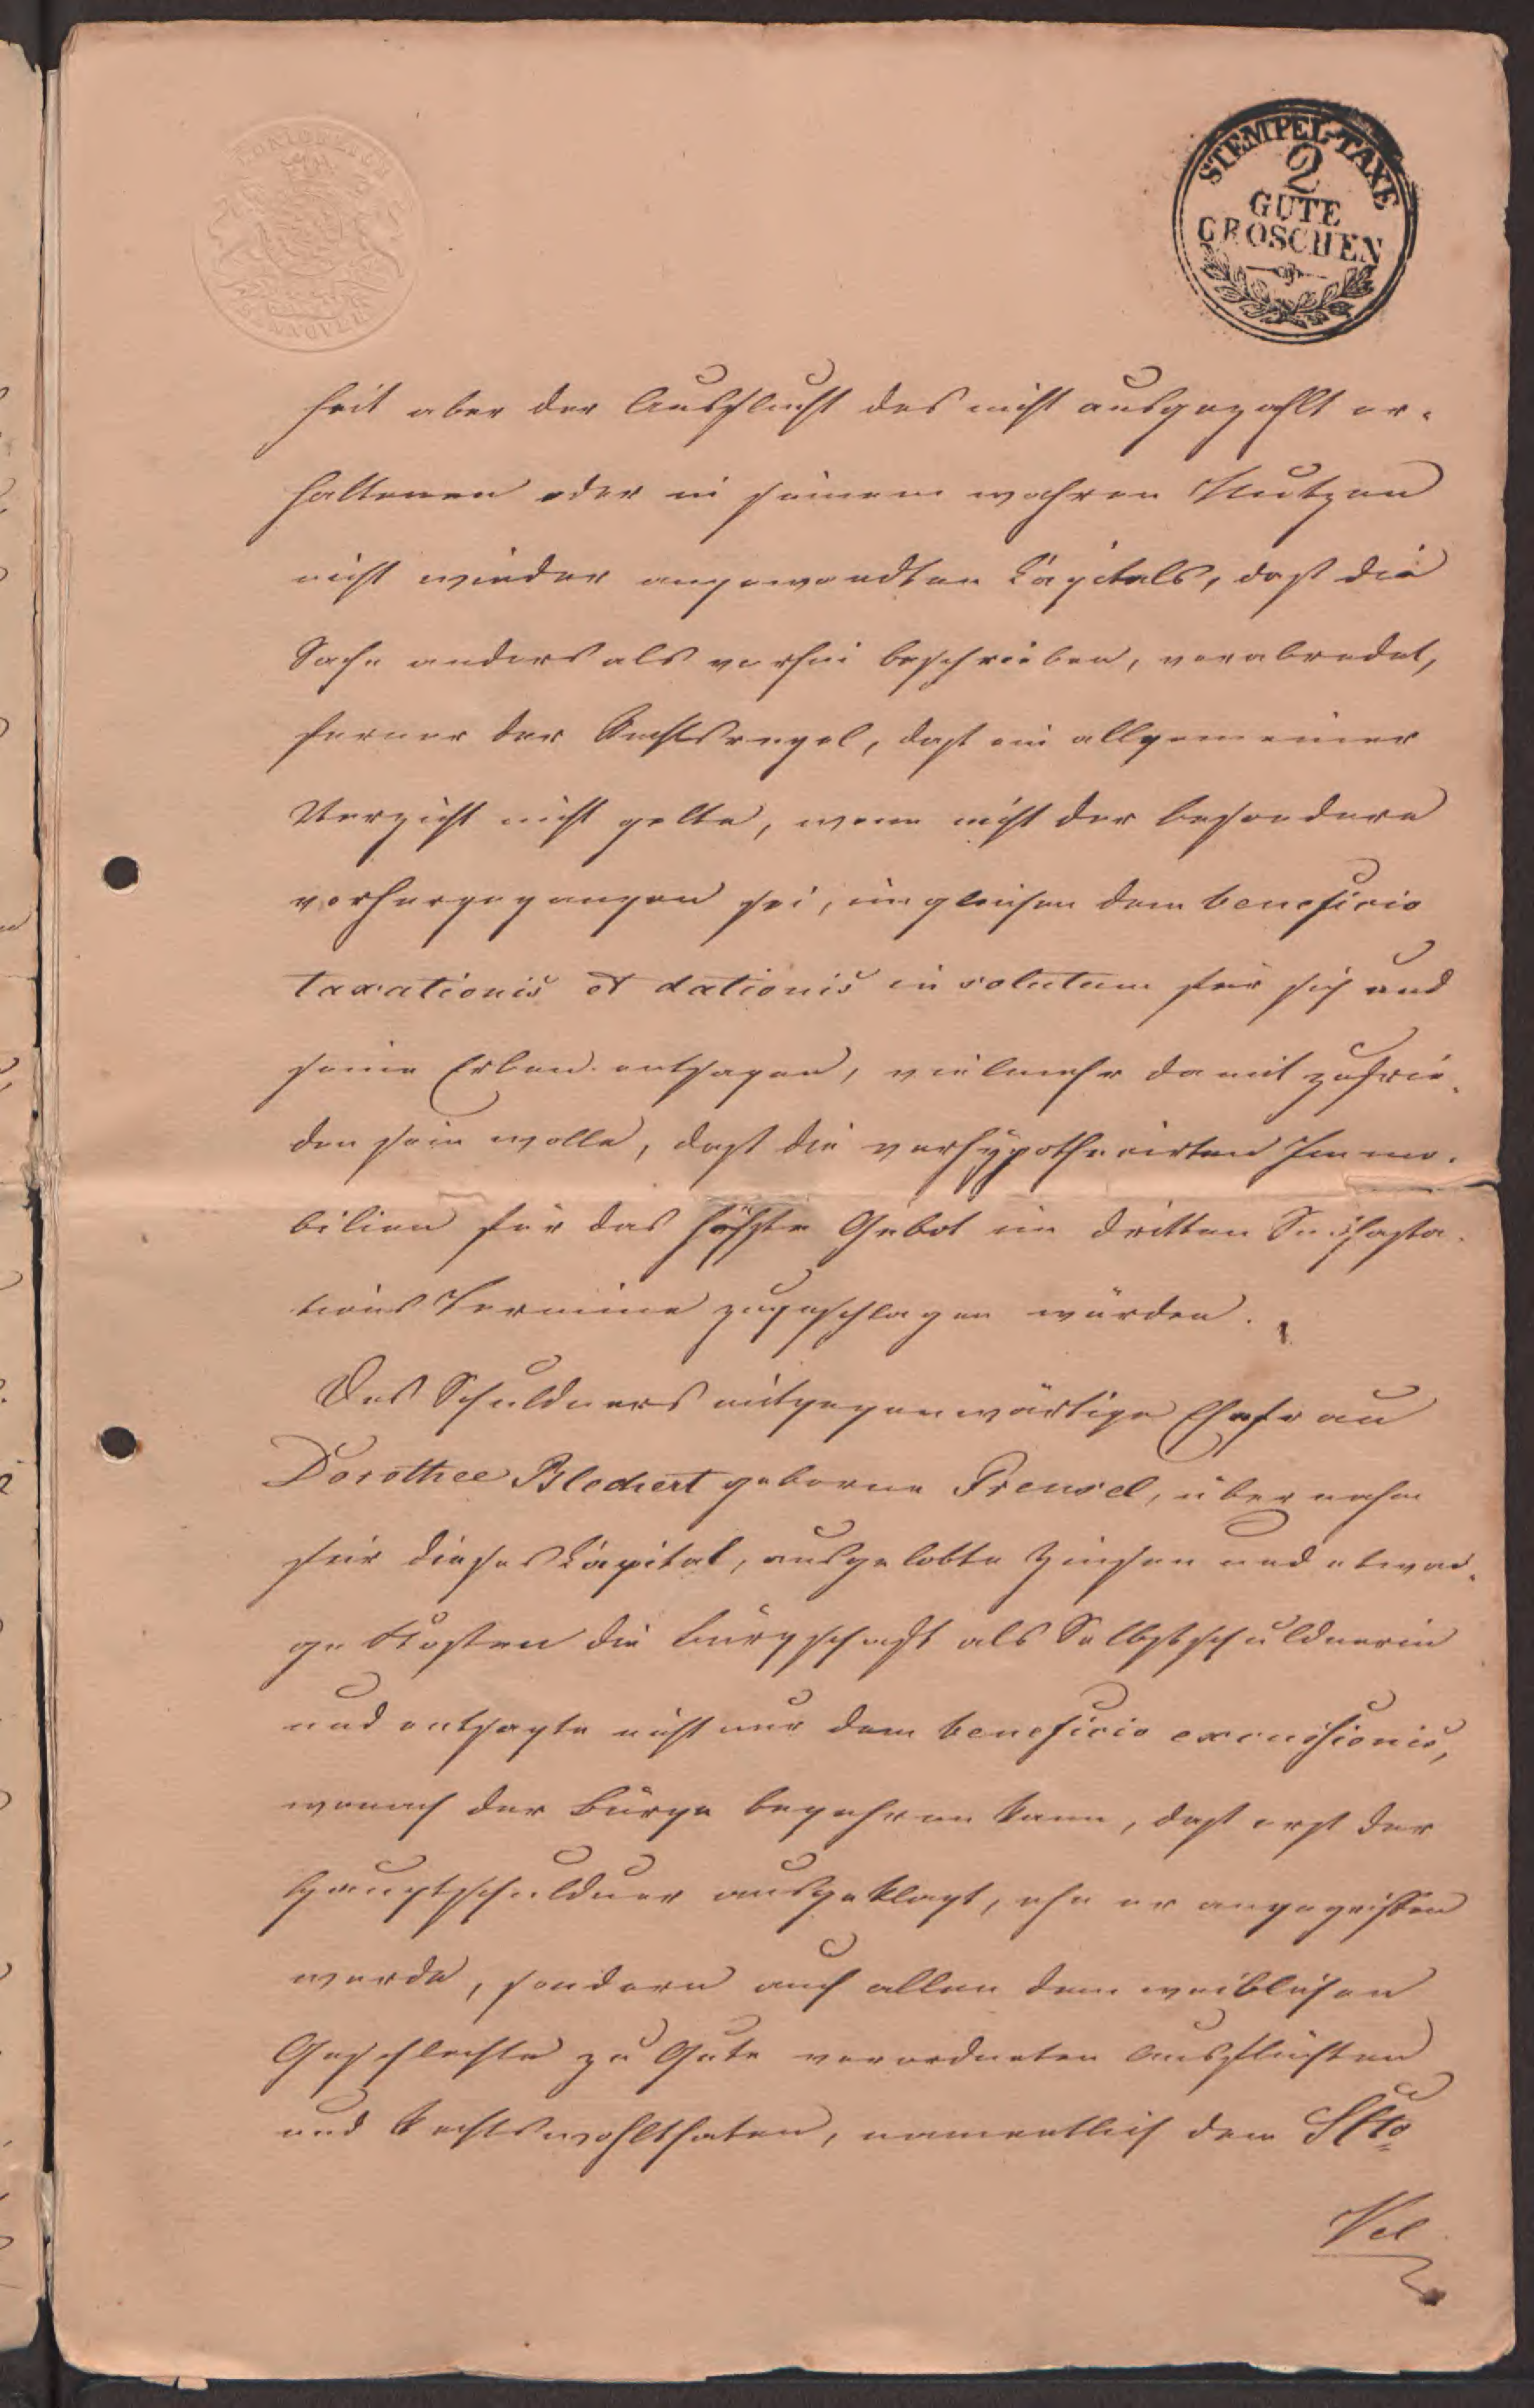 KÖNIGREICH
HANNOVER
STEMPEL-TAXE
2
GUTE
GROSCHEN
heit aber der Ausflucht des nicht ausgezahlt er-
haltenen oder in seinem wahren Nutzen
nicht wieder angewandten Capitals, daß die
Sache anders als vorhin beschrieben, verabredet,
ferner der Rechtsregel, daß ein allgemeiner
Verzicht nicht gelte, wenn nicht der besondere
vorhergegangen sei, imgleichen dem beneficio
taxationis et dationis in solutum für sich und
seine Erben entsagen, vielmehr damit zufrie-
den sein wolle, daß die verhypothecirten Immo-
bilien für das höchste Gebot im dritten Subhasta-
tions Termine zugeschlagen würden.
Des Schuldners mitgegenwärtige Ehefrau
Dorothee Blechert geborne Prensel, übernahm
für dieses Capital, ausgelobte Zinsen und etwai-
ge Kosten die Bürgschaft als Selbstschuldnerin
und entsagte nicht nur dem beneficio excussionis,
wonach der Bürge begehren kann, daß erst der
Hauptschuldner ausgeklagt, ehe er angegriffen
werde, sondern auch allen dem weiblichen
Geschlechte zu Gute verordneten Ausflüchten
und Rechtswohlthaten, namentlich dem SCto
Vel